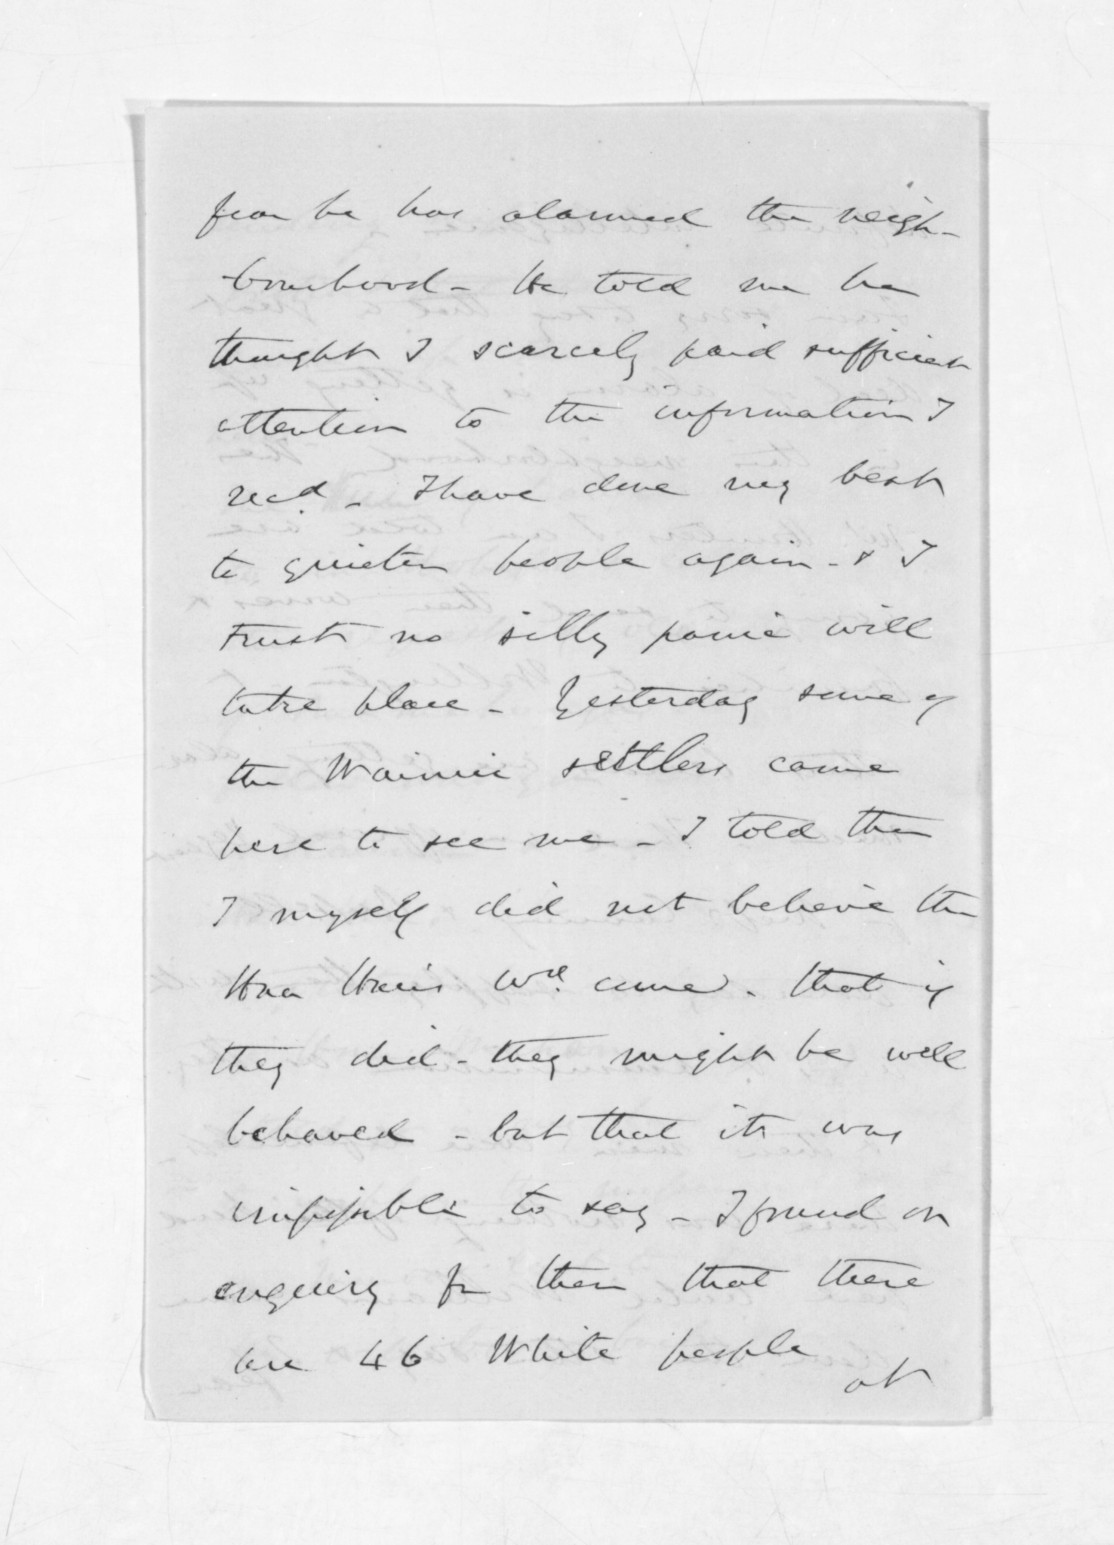 fear he has alarmed the neigh-
bourhood - He told me he
thought I scarcely paid sufficient
attention to the information I
recd. - I have done my best
to quieten people again - & I
trust no silly panic will
take place - Yesterday some of
the Wainui settlers came
here to see me - I told them
I myself did not believe the
Hau Haus wd. come - that if
they did - they might be well
behaved - but that it was
impossible to say - I found on
enquiry fm them that there
are 46 White people
at